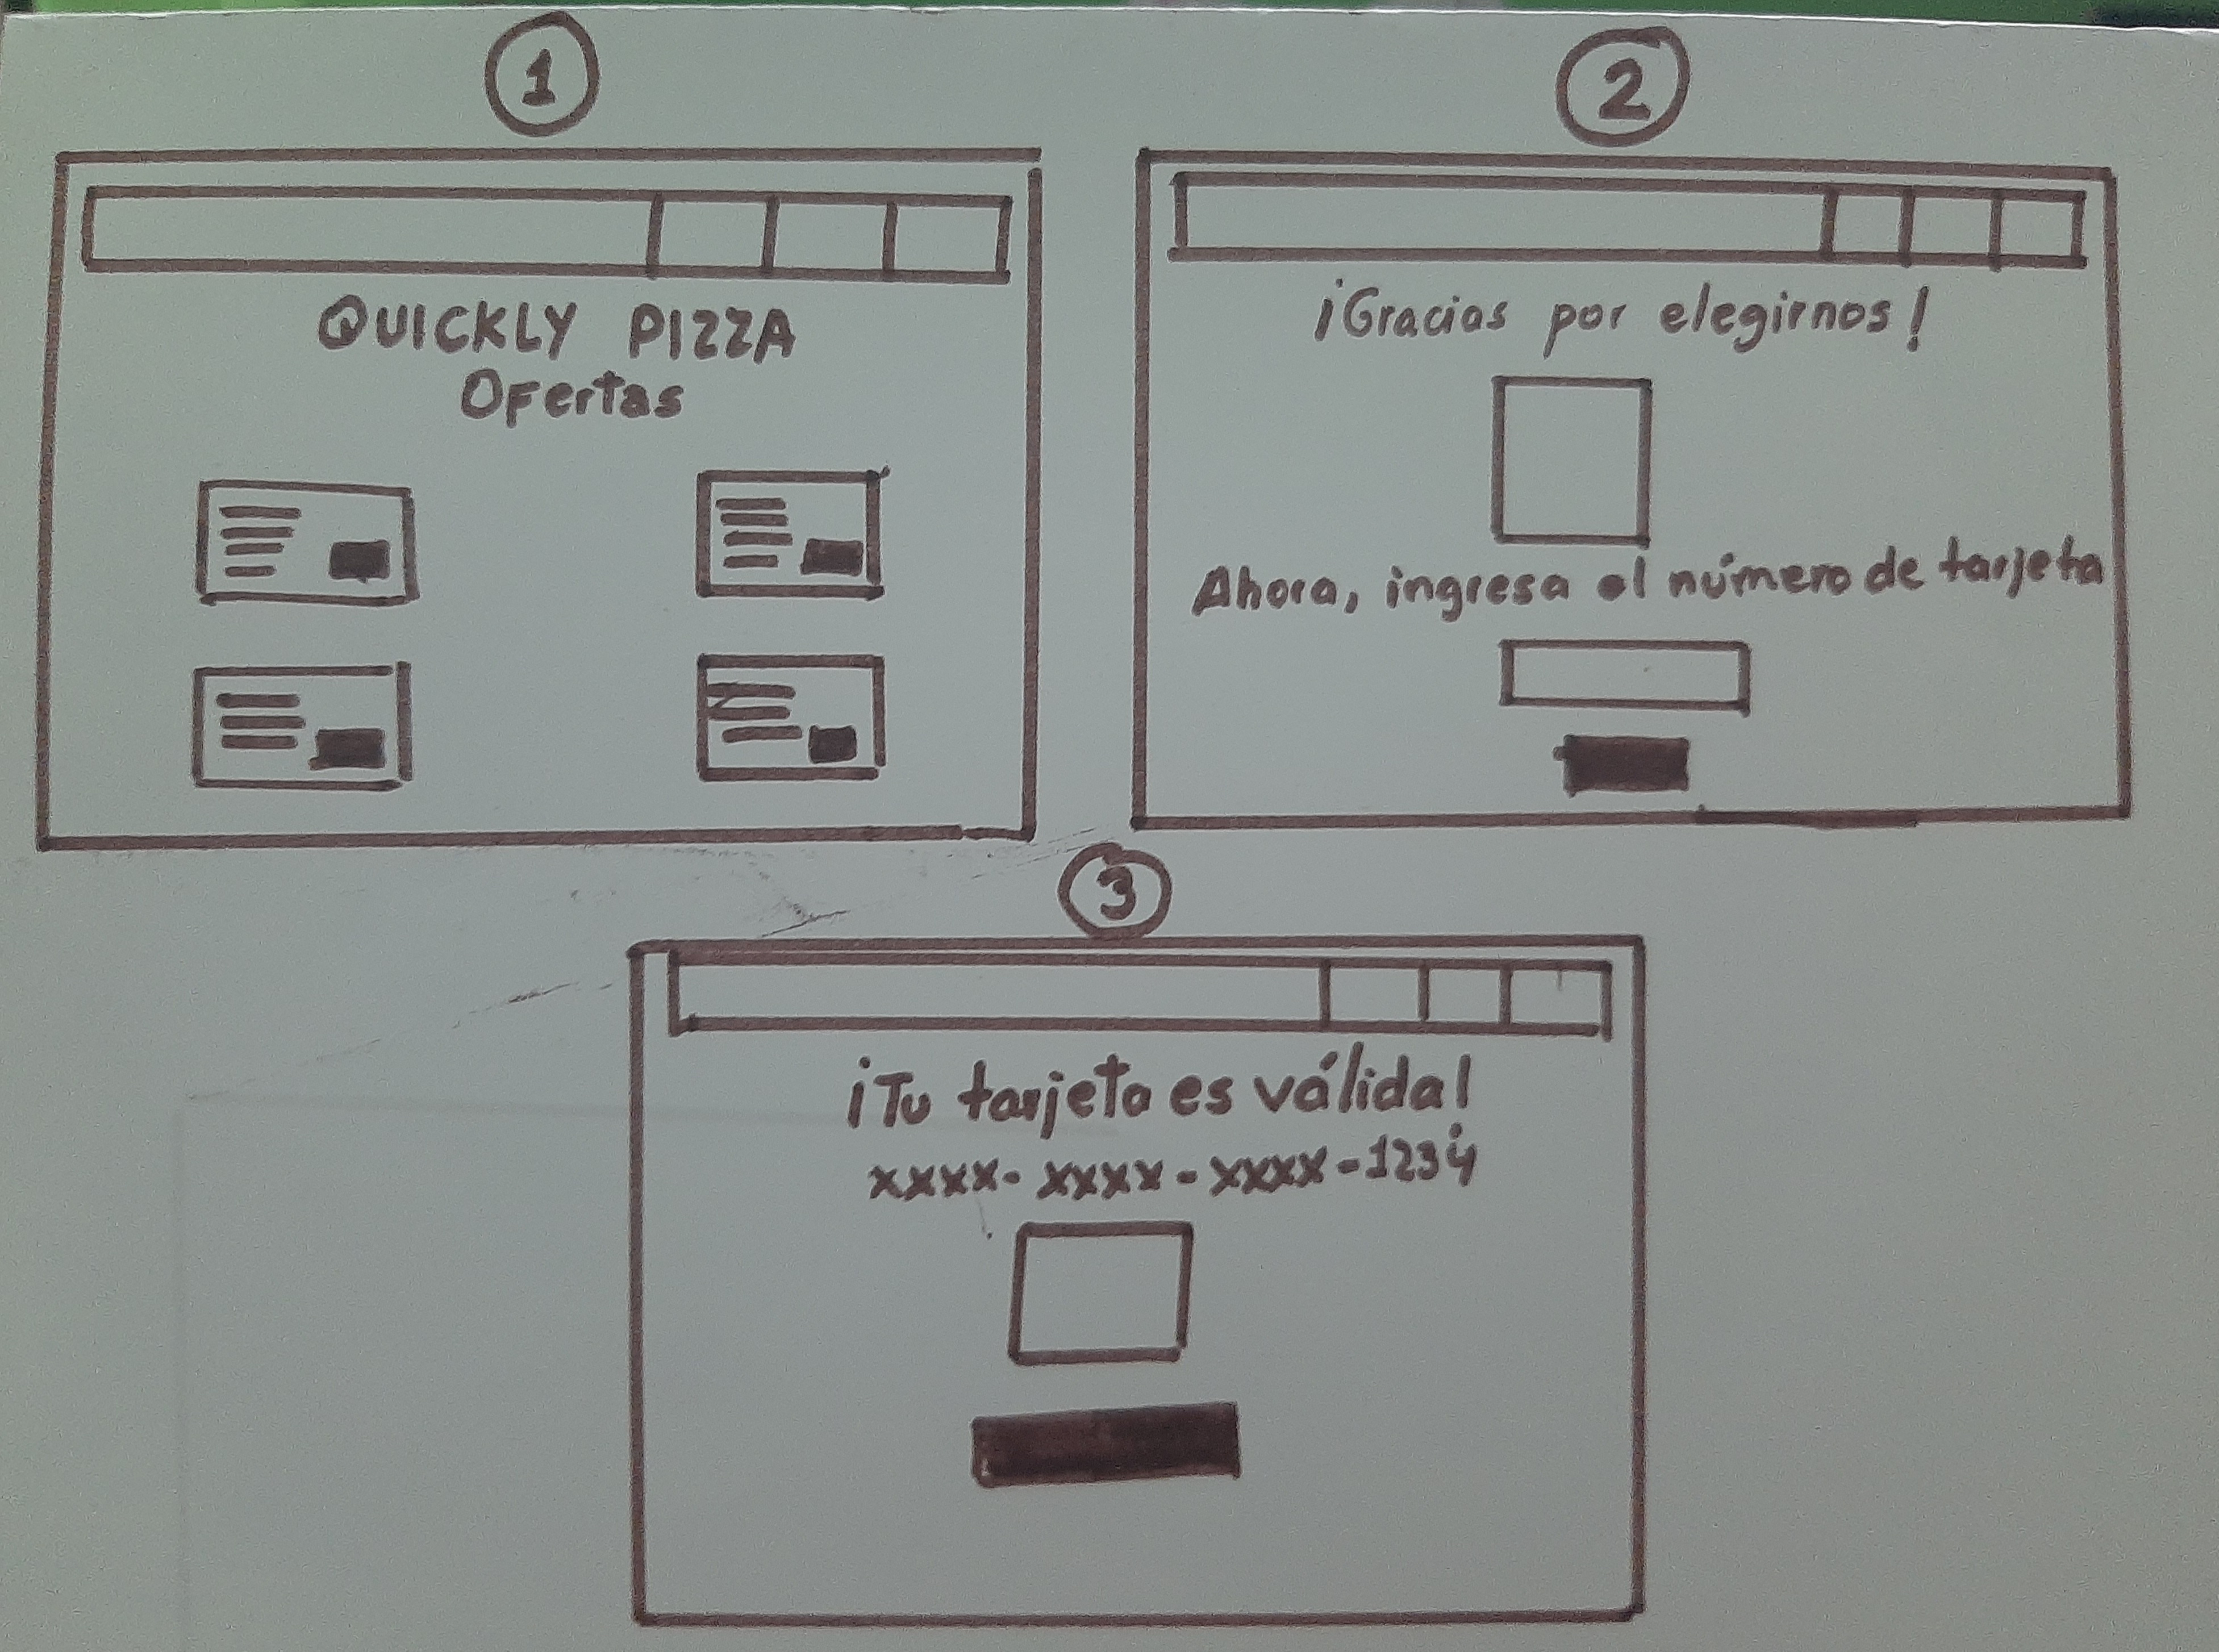 1
QUICKLY PIZZA
Ofertas
2
¡Gracias por elegirnos!
Ahora, ingresa el número de tarjeta
3
¡Tu tarjeta es válida!
xxxx-xxxx-xxxx-1234